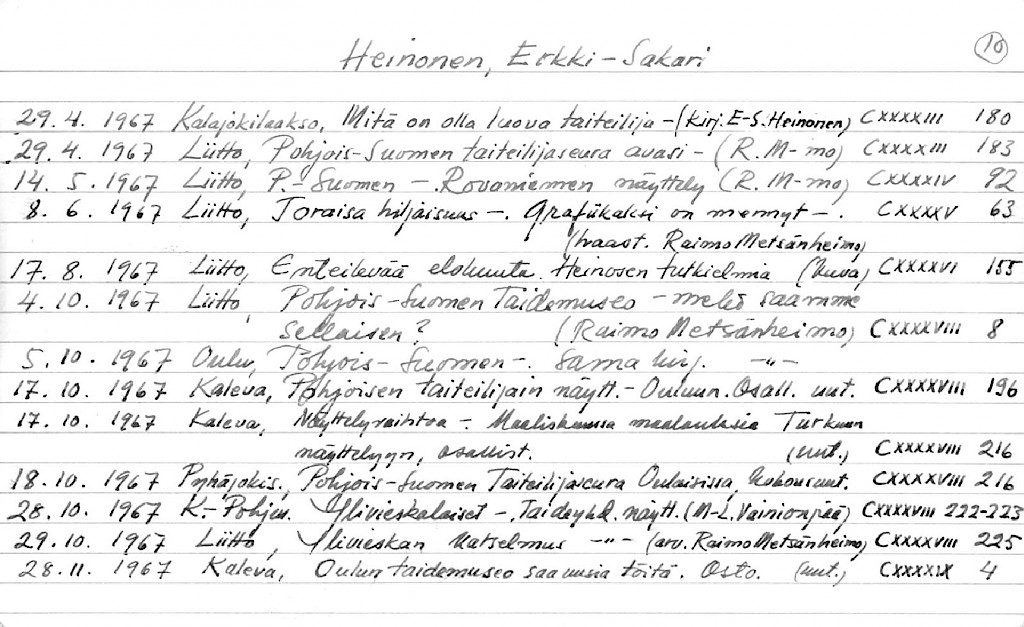 Heinonen, Erkki-Sakari
10
29. 4. 1967 Kalajokilaakso, Mitä on olla luova taiteilija - (kirj. E-S. Heinonen) CXXXXIII 180
29. 4. 1967 Liitto, Pohjois-Suomen taiteilijaseura avasi - (R. M-mo) CXXXXIII 183
14. 5. 1967 Liitto, P.-Suomen -. Rovaniemen näyttely (R. M-mo) CXXXXIV 92
8. 6. 1967 Liitto, Toraisa hiljaisuus -. Grafiikaksi on mennyt -. CXXXXV 63
(haast. Raimo Metsänheimo)
17. 8. 1967 Liitto, Enteilevää elokuuta. Heinosen tutkielmia (kuva) CXXXXVI 155
4. 10. 1967 Liitto, Pohjois-Suomen Taidemuseo - saamme
sellaisen? (Raimo Metsänheimo) CXXXXVIII 8
5. 10. 1967 Oulu, Pohjois-Suomen -. Sama kirj. -"-
17. 10. 1967 Kaleva, Pohjoisen taiteilijain näytt. - Ouluun. Osall. uut. CXXXXVIII 196
17. 10. 1967 Kaleva, Näyttelyvaihtoa -. Maaliskuussa maalauksia Turkuun
näyttelyyn, osallist. (uut.) CXXXXVIII 216
18. 10. 1967 Pyhäjokis., Pohjois-Suomen Taiteilijaseura Oulaisissa, kokousuut. CXXXXVIII 216
28. 10. 1967 K.-Pohjan. Ylivieskalaiset -. Taideyhd. näytt. (M-L. Vainionpää) CXXXXVIII 222-223
29. 10. 1967 Liitto, Ylivieskan katselmus -"- (arv. Raimo Metsänheimo) CXXXXVIII 225
28. 11. 1967 Kaleva, Oulun taidemuseo saa uusia töitä. Osto. (uut.) CXXXXIX 4